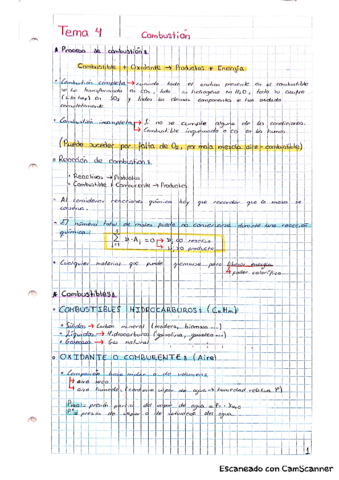 Tema 4 Combustión
Proceso de combustión:
Combustible + Oxidante → Productos + Energía
Combustión completa → cuando todo el carbono presente en el combustible
se ha transformado en CO₂, todo su hidrógeno en H₂O, todo su azufre
(si lo hay) en SO₂ y todos los demás componentes se han oxidado
completamente.
Combustión incompleta → Si no se cumple alguna de las condiciones.
Combustible inquemado o CO en los humos
(Puede suceder por falta de O₂, por mala mezcla aire-combustible)
Reacción de combustión:
Reactivos → Productos
Combustible + Comburente → Productos
Al considerar reacciones químicas hay que recordar que la masa se
conserva.
El número total de moles puede no conservarse durante una reacción
química:
Cualquier material que puede quemarse para liberar energía
poder calorífico
Combustibles:
COMBUSTIBLES HIDROCARBUROS: (CnHm)
Sólidos → Carbón mineral (madera, biomasa ...)
Líquidos → Hidrocarburos (gasolina, gasóleo ...)
Gaseosos → Gas natural
OXIDANTE O COMBURENTE: (Aire)
Composición
aire seco
aire húmedo (contiene vapor de agua → humedad relativa
presión parcial del vapor de agua
presión de vapor
1
Escaneado con CamScanner